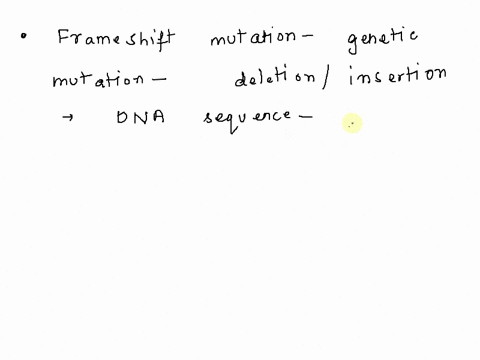 • Frameshift mutation - genetic
mutation - deletion / insertion
→ DNA sequence -